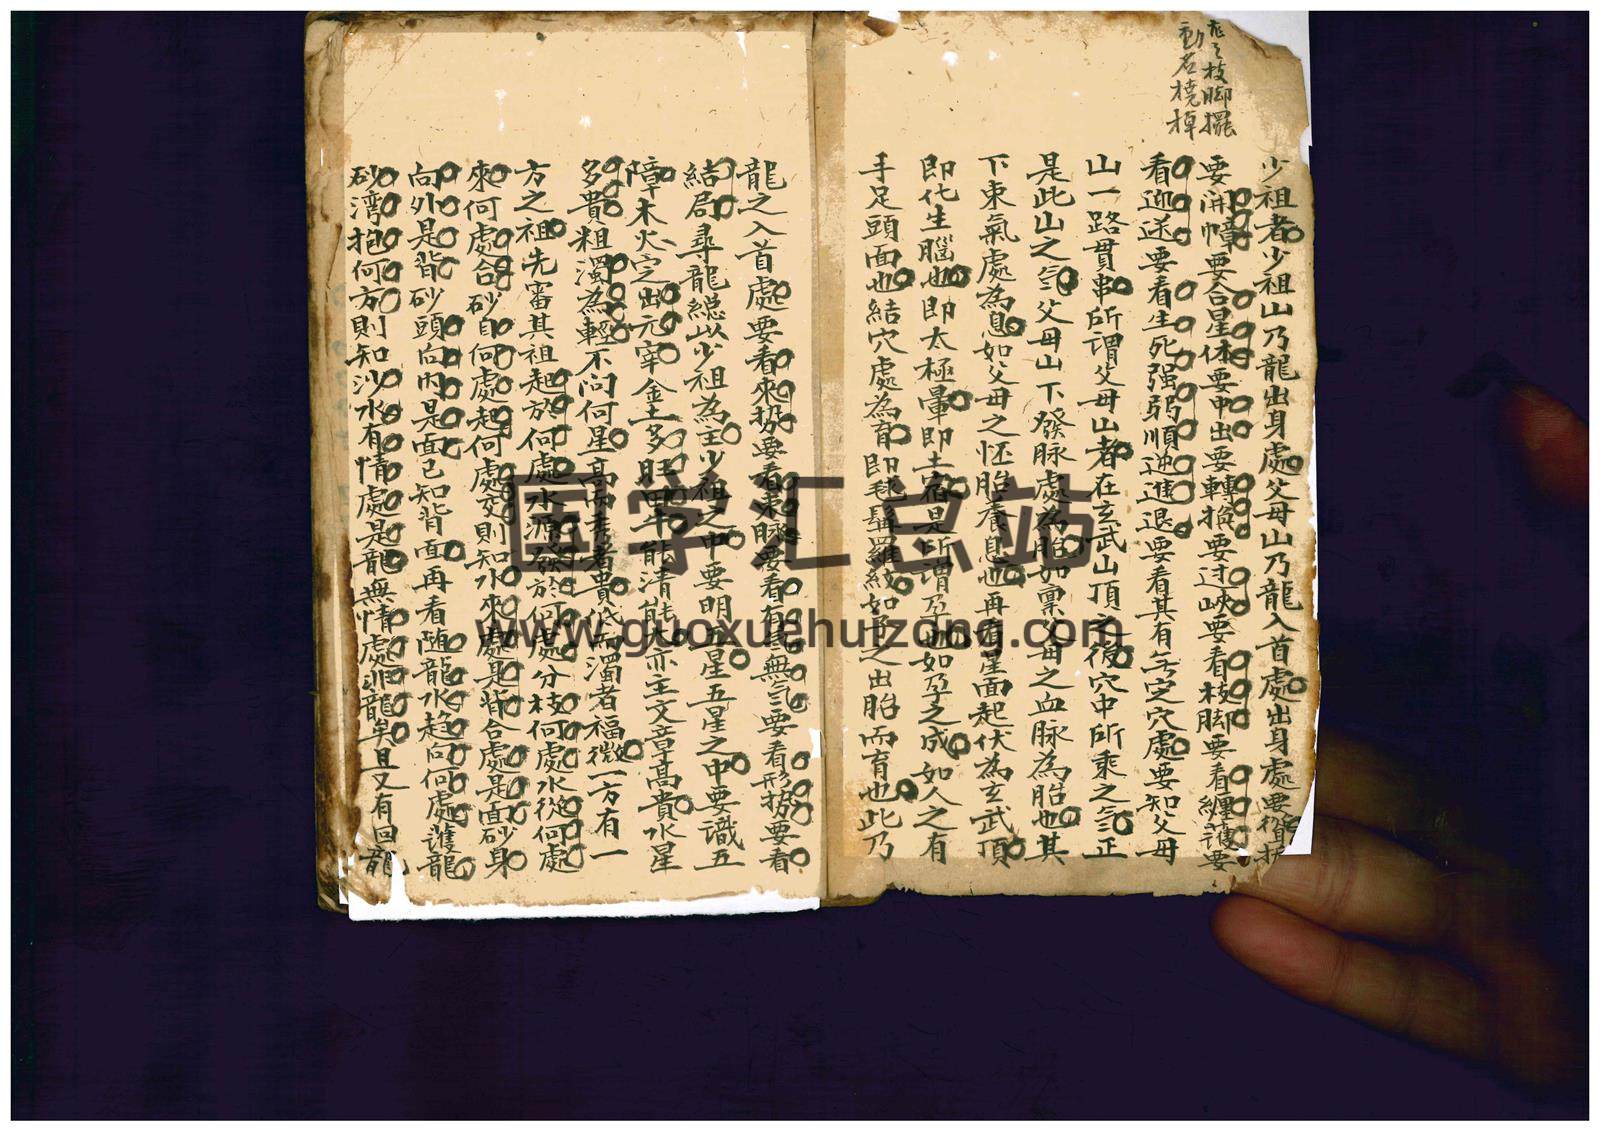 枝脚擺
動名橈棹
少祖者少祖山乃龍出身處父母山乃龍入首處出身處要
要開帳要合星体要中出要轉換要过峡要看枝脚要看纏護要
看迎送要看生死强弱順逆進退要看其有定之穴處要知父母
山一路貫串所謂父母山者在玄武山頂之後穴中所乘之气正
是此山之气父母山下發脉處為胎如禀父母之血脉為胎也其
下束氣處為息如父母之怀胎養息也再有星面起伏為玄武頂
即化生腦也即太極暈即土宿是所謂孕也如孕之成如人之有
手足頭面也結穴處為育即毬髯羅紋如子之出胎而育也此乃
龍之入首處要看來势要看束脉要看有气無气要看形势要看
結局尋龍總以少祖為主少祖之中要明五星五星之中要識五
障木火定出元宰金土多旺田牛能清能大亦主文章高貴水星
多貴粗濁為輕不问何星高而秀者貴低而濁者福微一方有一
方之祖先審其祖起於何處水源發於何處分枝何處水從何處
來何處合砂自何處起何處交則知水來處是背合處是面砂身
向外是背砂頭向内是面已知背面再看随龍水趋向何處護龍
砂湾抱何方則知沙水有情處是龍無情處非龍矣且又有回龍
国学汇总站
www.guoxuehuizong.com